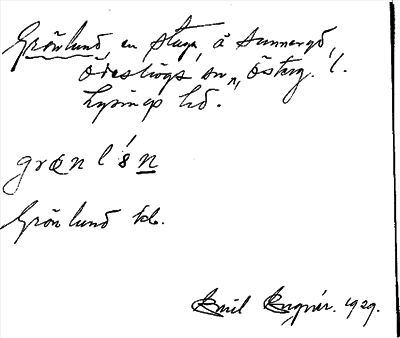 Grönlund, en stuga, å Sunnergd,
Ödeshögs sn, Österg. l.
Lysings hd.
grœnlśn
Grönlund kb.
Emil Engnér. 1929.